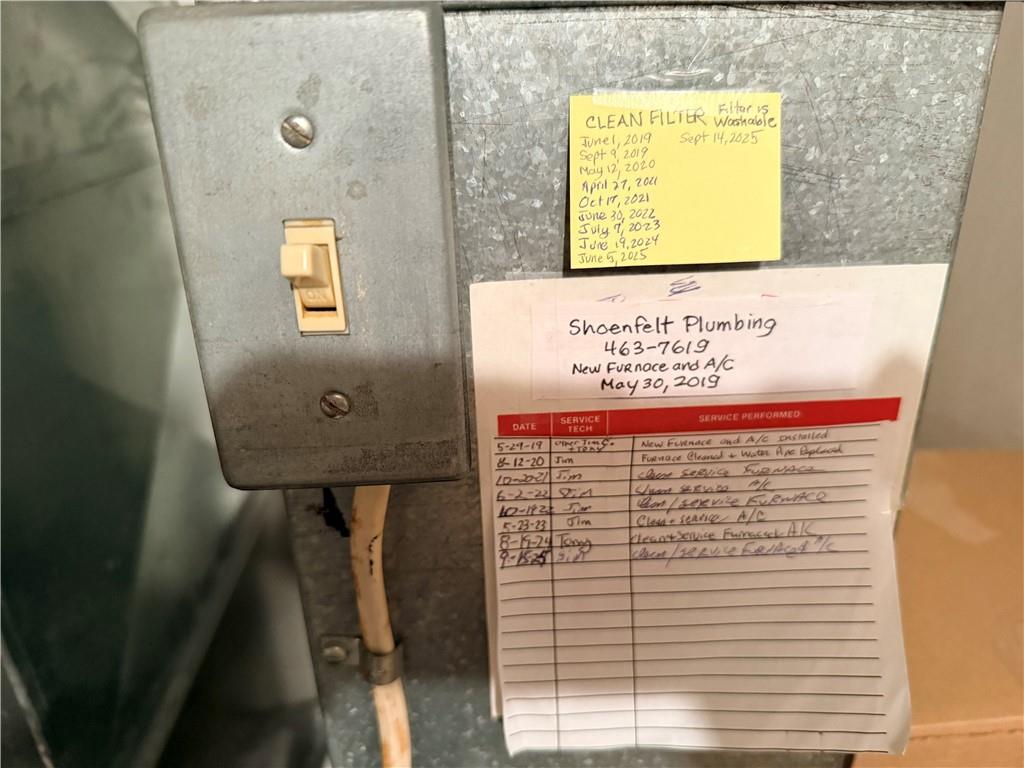 ON
CLEAN FILTER Filter is Washable
June 1, 2019 Sept 14, 2025
Sept 9, 2019
May 12, 2020
April 27, 2021
Oct 17, 2021
June 30, 2022
July 7, 2023
June 19, 2024
June 5, 2025
Shoenfelt Plumbing
463-7619
New Furnace and A/C
May 30, 2019
DATE SERVICE TECH SERVICE PERFORMED
5-29-19 Other Jim C. + Tony New Furnace and A/C installed
8-12-20 Jim Furnace Cleaned + Water Pipe Replaced
10-20-21 Jim Clean service FURNACE
6-2-22 Jim Clean service A/C
10-19-22 Jim Clean/service FURNACE
5-23-23 Jim Clean + service A/C
8-19-24 Tony Clean + Service Furnace +
9-15-25 Jim Clean/SERVICE FURNACE + A/C